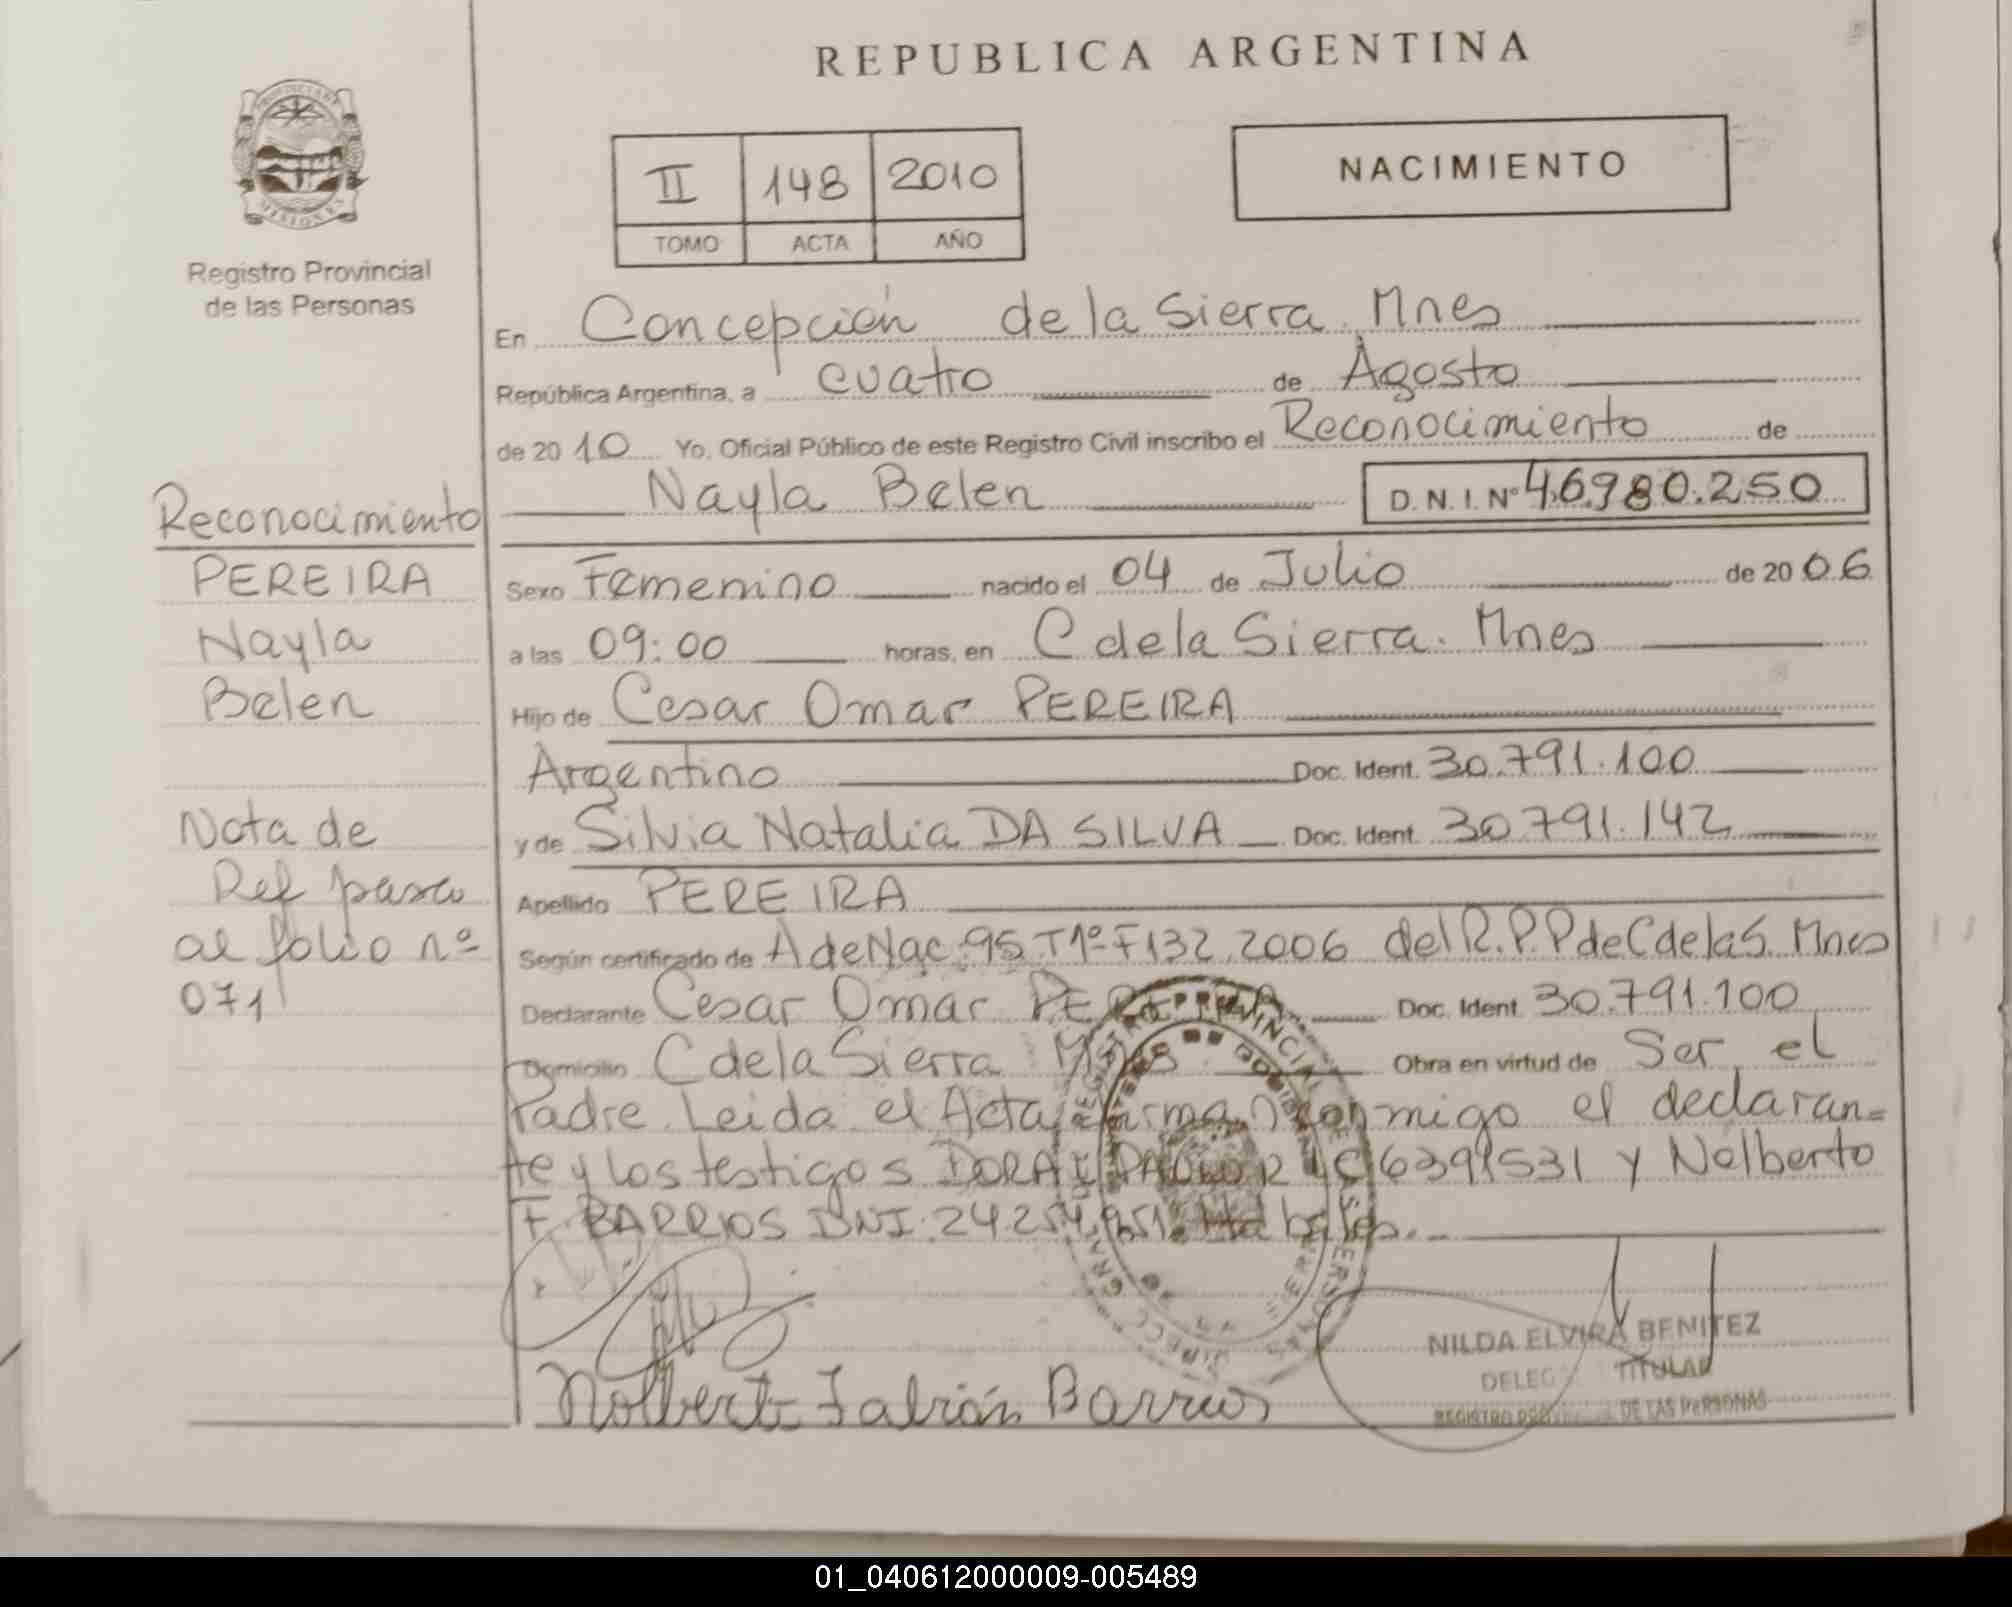 REPUBLICA ARGENTINA
PROVINCIA DE
MISIONES
Registro Provincial
de las Personas
II 148 2010
TOMO ACTA AÑO
NACIMIENTO
En Concepción de la Sierra. Mnes
República Argentina, a cuatro de Agosto
de 2010 Yo, Oficial Público de este Registro Civil inscribo el Reconocimiento de
Nayla Belen D.N.I. Nº 46.980.250
Sexo Femenino nacido el 04 de Julio de 2006
a las 09:00 horas, en C de la Sierra. Mnes
Hijo de Cesar Omar PEREIRA
Argentino Doc. Ident. 30.791.100
y de Silvia Natalia DA SILVA Doc. Ident. 30.791.142
Apellido PEREIRA
Según certificado de A de Nac: 95.T1º-F132.2006 del R.P.P de C de la S. Mnes
Declarante Cesar Omar PEREIRA Doc. Ident. 30.791.100
Domicilio C de la Sierra Mnes Obra en virtud de Ser el
Padre. Leida el Acta firman conmigo el declaran=
te y los testigos DORA LC 6391531 y Nolberto
F. BARRIOS DNI: 24.254.951. habiles.
Nolberto Fabián Barrios
NILDA ELVIRA BENITEZ
DELEG TITULAR
REGISTRO PROVINCIAL DE LAS PERSONAS
Reconocimiento
PEREIRA
Nayla
Belen
Nota de
Ref pasa
al folio nº
071
01_040612000009-005489